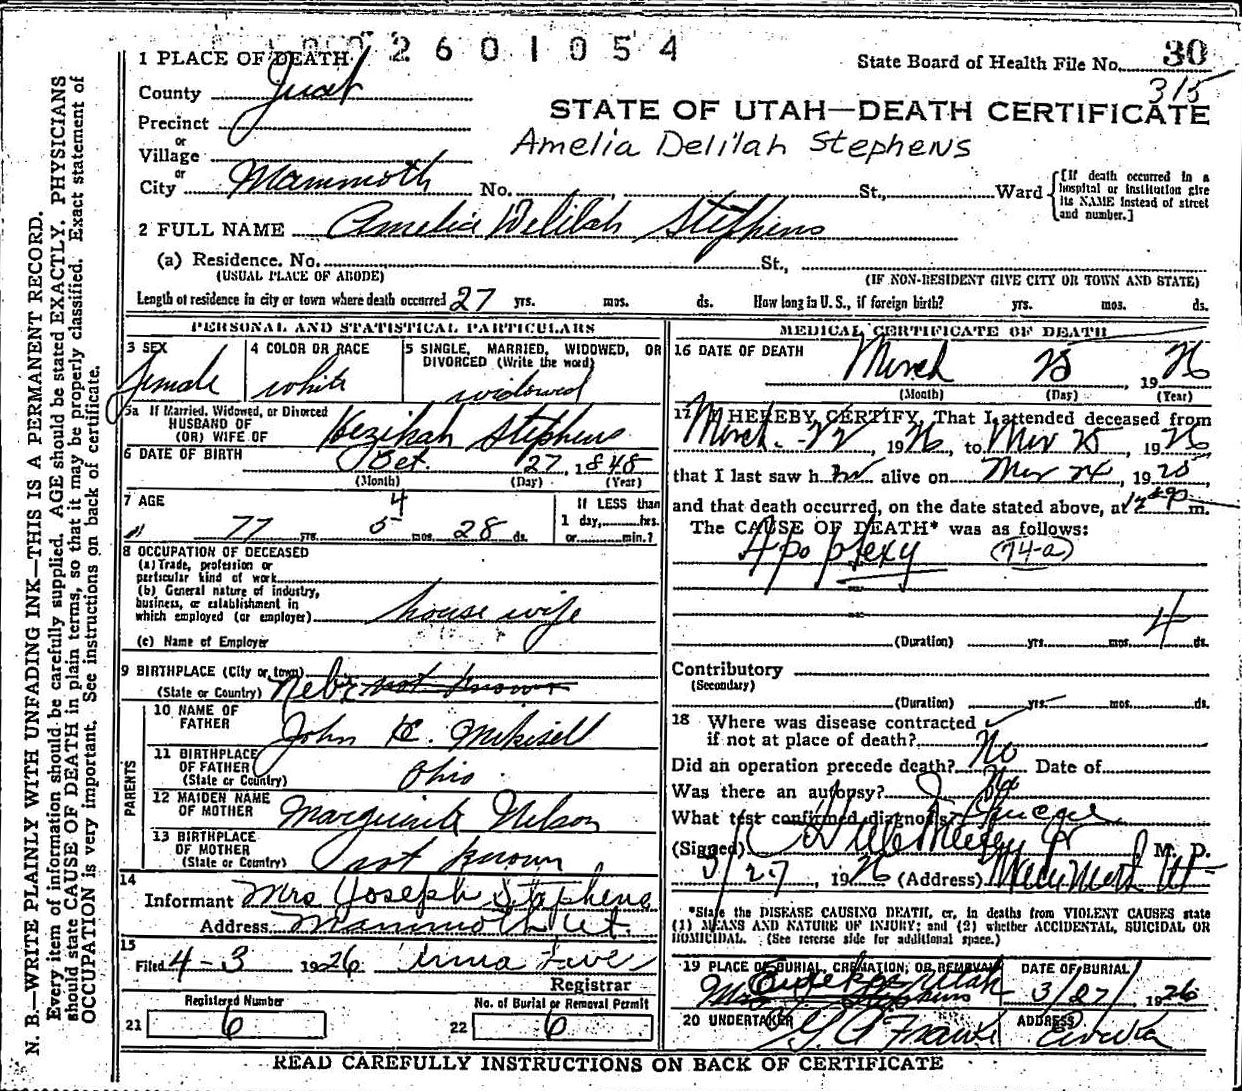 2601054
1 PLACE OF DEATH
State Board of Health File No. 30
315
County Juab
STATE OF UTAH—DEATH CERTIFICATE
Precinct
or
Amelia Delilah Stephens
Village
or
City Mammoth No. St., Ward
[If death occurred in a hospital or institution give its NAME instead of street and number.]
2 FULL NAME Amelia Delilah Stephens
(a) Residence. No. St.,
(USUAL PLACE OF ABODE) (IF NON-RESIDENT GIVE CITY OR TOWN AND STATE)
Length of residence in city or town where death occurred 27 yrs. mos. ds. How long in U. S., if foreign birth? yrs. mos. ds.
PERSONAL AND STATISTICAL PARTICULARS
3 SEX 4 COLOR OR RACE 5 SINGLE, MARRIED, WIDOWED, OR
DIVORCED (Write the word)
female white widowed
5a If Married, Widowed, or Divorced
HUSBAND OF
(OR) WIFE OF Hezikah Stephens
6 DATE OF BIRTH Oct. 27, 1848
(Month) (Day) (Year)
7 AGE 4 If LESS than
1 day, hrs.
77 yrs. 5 mos. 28 ds. or min.?
8 OCCUPATION OF DECEASED
(a) Trade, profession or
particular kind of work
(b) General nature of industry,
business, or establishment in
which employed (or employer) house wife
(c) Name of Employer
9 BIRTHPLACE (City or town)
(State or Country) Nebr not known
PARENTS
10 NAME OF
FATHER John Mikisell
11 BIRTHPLACE
OF FATHER
(State or Country) Ohio
12 MAIDEN NAME
OF MOTHER Marguirite Nelson
13 BIRTHPLACE
OF MOTHER
(State or Country) not known
14
Informant Mrs Joseph Stephens
Address Mammoth Ut
15
Filed 4-3 1926
Registrar
Registered Number No. of Burial or Removal Permit
21 6 22 6
MEDICAL CERTIFICATE OF DEATH
16 DATE OF DEATH March 25, 1926
(Month) (Day) (Year)
17 I HEREBY CERTIFY, That I attended deceased from
March 22, 1926, to Mar 25, 1926
that I last saw h alive on Mar 24, 1925,
and that death occurred, on the date stated above, at m.
The CAUSE OF DEATH* was as follows:
Apoplexy (74-a)
(Duration) yrs. mos. 4 ds.
Contributory
(Secondary)
(Duration) yrs. mos. ds.
18 Where was disease contracted
if not at place of death?
Did an operation precede death? No Date of
Was there an autopsy? No
What test confirmed diagnosis?
(Signed) M. D.
3/27, 1926 (Address)
*State the DISEASE CAUSING DEATH, or, in deaths from VIOLENT CAUSES state
(1) MEANS AND NATURE OF INJURY; and (2) whether ACCIDENTAL, SUICIDAL OR
HOMICIDAL. (See reverse side for additional space.)
19 PLACE OF BURIAL, CREMATION, OR REMOVAL DATE OF BURIAL
Eureka Utah
Mrs Stephens 3/27/, 1926
20 UNDERTAKER ADDRESS
Eureka
READ CAREFULLY INSTRUCTIONS ON BACK OF CERTIFICATE
N. B.—WRITE PLAINLY WITH UNFADING INK—THIS IS A PERMANENT RECORD.
Every item of information should be carefully supplied. AGE should be stated EXACTLY. PHYSICIANS
should state CAUSE OF DEATH in plain terms, so that it may be properly classified. Exact statement of
OCCUPATION is very important. See instructions on back of certificate.